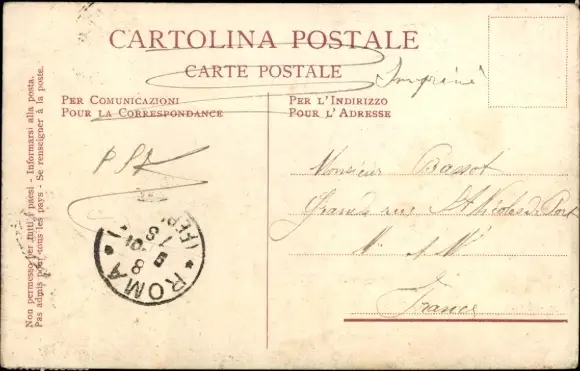 CARTOLINA POSTALE
CARTE POSTALE
Imprimé
PER COMUNICAZIONI
POUR LA CORRESPONDANCE
PER L'INDIRIZZO
POUR L'ADRESSE
Non permesso per tutti i paesi - Informarsi alla posta.
Pas admis pour tous les pays - Se renseigner à la poste.
Monsieur Bassot
Grande rue St Nicolas de Port
M et M
France
ROMA